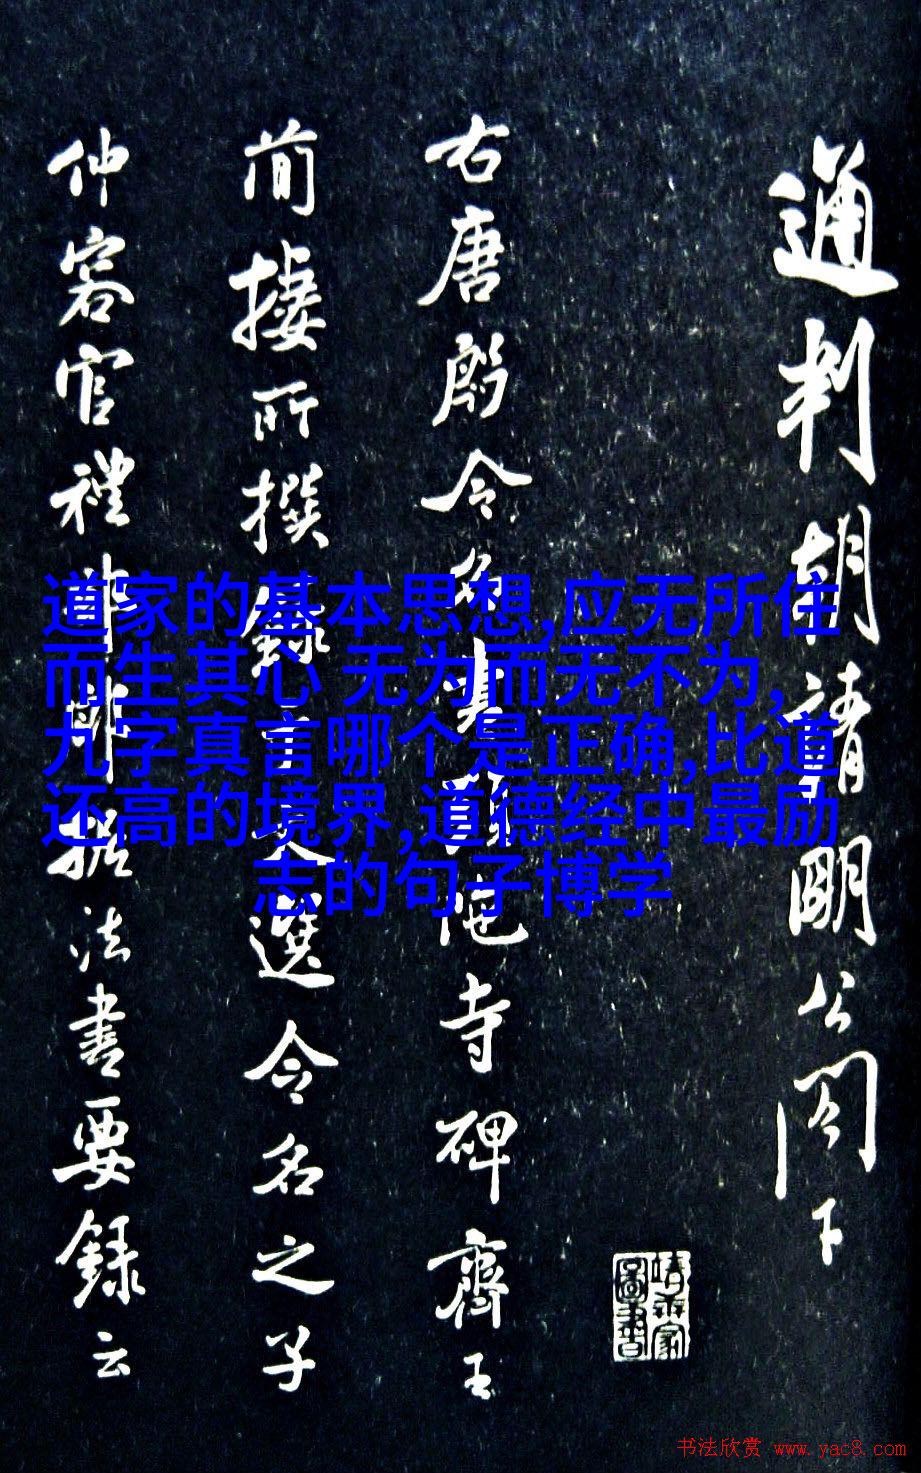 通判朝請明公閣下
右唐殷令名書頭陀寺碑齊王
簡棲所撰錄于文選令名之子
仲容官禮部郎據法書要録云
道家的基本思想,应无所住
而生其心 无为而无不为,
九字真言哪个是正确,比道
还高的境界,道德经中最励
志的句子博学
书法欣赏 www.yac8.com